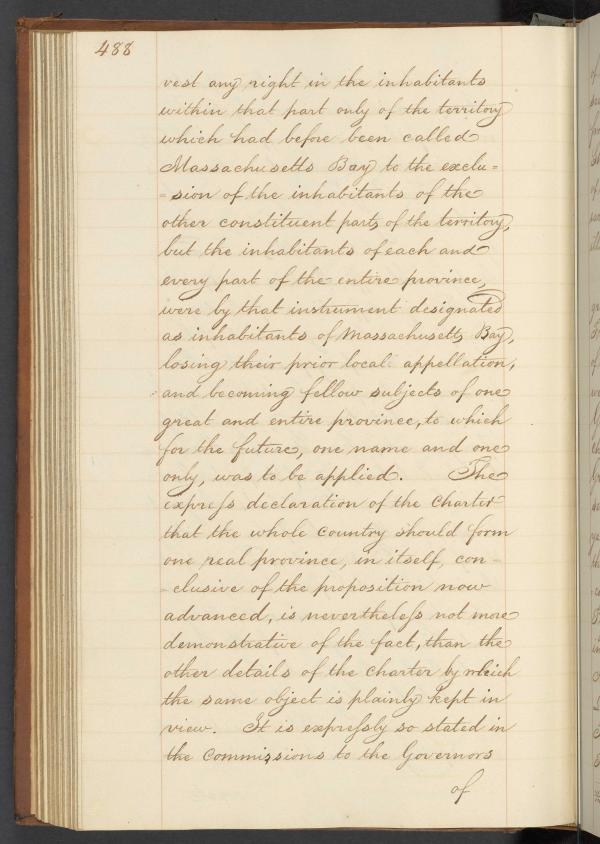 488
vest any right in the inhabitants
within that part only of the territory
which had before been called
Massachusetts Bay to the exclu=
=sion of the inhabitants of the
other constituent parts of the territory,
but the inhabitants of each and
every part of the entire province,
were by that instrument designated
as inhabitants of Massachusetts Bay,
losing their prior local appellation,
and becoming fellow subjects of one
great and entire province, to which
for the future, one name and one
only, was to be applied. The
expreſs declaration of the Charter
that the whole country should form
one real province, in itself, con-
-clusive of the proposition now
advanced, is nevertheleſs not more
demonstrative of the fact, than the
other details of the charter by which
the same object is plainly kept in
view. It is expreſsly so stated in
the commissions to the Governors
of